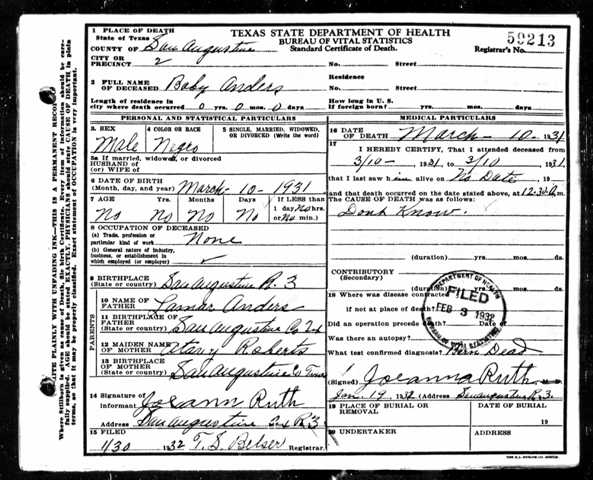 1 PLACE OF DEATH
State of Texas
COUNTY OF San Augustine
CITY OR PRECINCT 2
TEXAS STATE DEPARTMENT OF HEALTH
BUREAU OF VITAL STATISTICS
Standard Certificate of Death.
59213
Registrar's No.
No. Street
2 FULL NAME OF DECEASED Baby Anders
Residence
No. Street
Length of residence in city where death occurred 0 yrs. 0 mos. 0 days.
How long in U. S. If foreign born? yrs. mos. days.
PERSONAL AND STATISTICAL PARTICULARS
MEDICAL PARTICULARS
3. SEX Male
4 COLOR OR RACE Negro
5 SINGLE, MARRIED, WIDOWED, OR DIVORCED (Write the word)
5a If married, widowed, or divorced
HUSBAND OF
(or) WIFE OF
6 DATE OF BIRTH
(Month, day, and year) March - 10 - 1931
7 AGE Yrs. Months Days If LESS than
1 day No hrs.
No No No or No min.)
8 OCCUPATION OF DECEASED
(a) Trade, profession or particular kind of work None
(b) General nature of industry, business, or establishment in which employed (or employer)
9 BIRTHPLACE
(State or country) San Augustine R. 3
PARENTS
10 NAME OF FATHER Lamar Anders
11 BIRTHPLACE OF FATHER
(State or country) San Augustine Co
12 MAIDEN NAME OF MOTHER Roberts
13 BIRTHPLACE OF MOTHER
(State or country) San Augustine Co Texas
14 Signature of Informant Joeann Ruth
Address San Augustine R 3
15 FILED
1/30 1932 T. S. Belser Registrar.
16 DATE OF DEATH March - 10 - 1931
17
I HEREBY CERTIFY, That I attended deceased from
3/10 - 1931 to 3/10 1931
that I last saw him alive on No Date, 19
and that death occurred on the date stated above, at 12:30 a. m.
The CAUSE OF DEATH was as follows:
Dont Know.
(duration) yrs. mos. ds.
CONTRIBUTORY
(Secondary)
(duration) yrs. mos. ds.
18 Where was disease contracted
if not at place of death?
Did an operation precede death? Date of
Was there an autopsy?
What test confirmed diagnosis? Born Dead
DEPARTMENT OF HEALTH
FILED
FEB 3 1932
BUREAU OF VITAL STATISTICS
(Signed) Joeanna Ruth
Jan. 19, 1932 (Address San Augustine R. 3.
19 PLACE OF BURIAL OR REMOVAL
DATE OF BURIAL
19
20 UNDERTAKER
ADDRESS
WRITE PLAINLY WITH UNFADING INK—THIS IS A PERMANENT RECORD